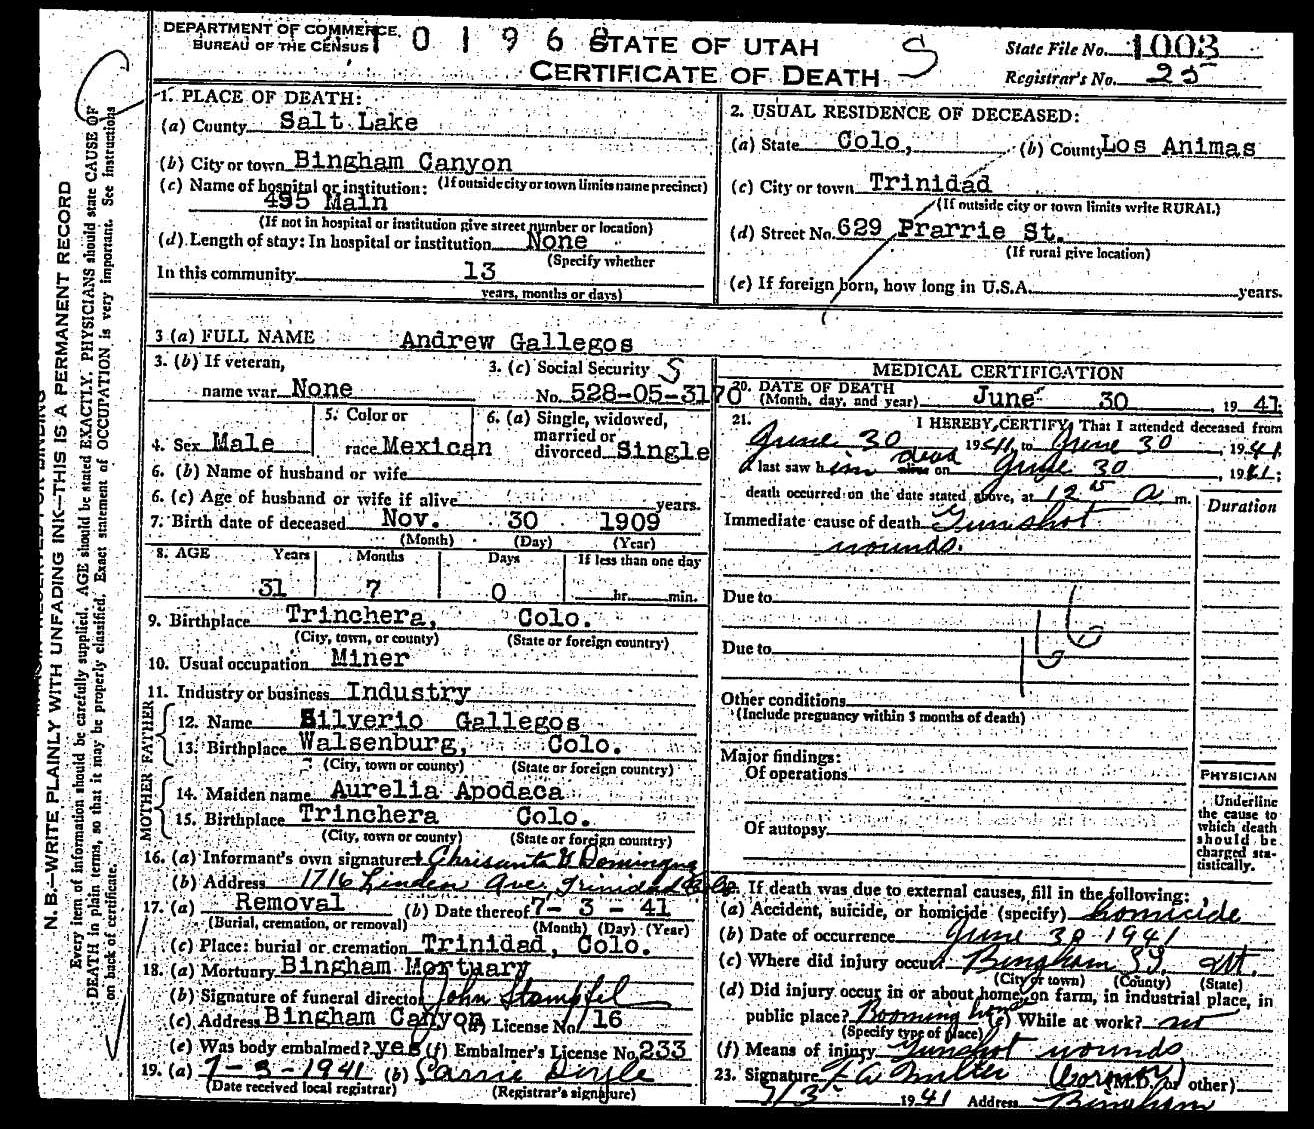 DEPARTMENT OF COMMERCE
BUREAU OF THE CENSUS
1 0 1 9 6
STATE OF UTAH
CERTIFICATE OF DEATH
S
State File No. 1003
Registrar's No. 25
1. PLACE OF DEATH:
(a) County Salt Lake
(b) City or town Bingham Canyon
(If outside city or town limits name precinct)
(c) Name of hospital or institution:
495 Main
(If not in hospital or institution give street number or location)
(d) Length of stay: In hospital or institution None
(Specify whether
In this community 13
years, months or days)
2. USUAL RESIDENCE OF DECEASED:
(a) State Colo, (b) County Los Animas
(c) City or town Trinidad
(If outside city or town limits write RURAL)
(d) Street No. 629 Prarrie St.
(If rural give location)
(e) If foreign born, how long in U.S.A. years.
3 (a) FULL NAME Andrew Gallegos
3. (b) If veteran,
name war None
3. (c) Social Security
No. 528-05-3170
S
4. Sex Male
5. Color or
race Mexican
6. (a) Single, widowed,
married or
divorced Single
6. (b) Name of husband or wife
6. (c) Age of husband or wife if alive years.
7. Birth date of deceased Nov. 30 1909
(Month) (Day) (Year)
8. AGE Years Months Days If less than one day
31 7 0 hr. min.
9. Birthplace Trinchera, Colo.
(City, town, or county) (State or foreign country)
10. Usual occupation Miner
11. Industry or business Industry
FATHER
12. Name Silverio Gallegos
13. Birthplace Walsenburg, Colo.
(City, town or county) (State or foreign country)
MOTHER
14. Maiden name Aurelia Apodaca
15. Birthplace Trinchera Colo.
(City, town or county) (State or foreign country)
16. (a) Informant's own signature
(b) Address 1716 Linden Ave, Trinidad Colo.
17. (a) Removal (b) Date thereof 7-3-41
(Burial, cremation, or removal) (Month) (Day) (Year)
(c) Place: burial or cremation Trinidad, Colo.
18. (a) Mortuary Bingham Mortuary
(b) Signature of funeral director John Stampfel
(c) Address Bingham Canyon (d) License No. 16
(e) Was body embalmed? yes (f) Embalmer's License No. 233
19. (a) 7-3-1941 (b)
(Date received local registrar) (Registrar's signature)
MEDICAL CERTIFICATION
20. DATE OF DEATH
(Month, day, and year) June 30, 1941
21. I HEREBY CERTIFY, That I attended deceased from
June 30 1941 to June 30, 1941.
I last saw him dead alive on June 30, 1941;
death occurred on the date stated above, at 12 15 A m.
Duration
Immediate cause of death Gunshot
wounds.
Due to
Due to
Other conditions
(Include pregnancy within 3 months of death)
Major findings:
Of operations
Of autopsy
PHYSICIAN
Underline
the cause to
which death
should be
charged sta-
tistically.
If death was due to external causes, fill in the following:
(a) Accident, suicide, or homicide (specify) homicide
(b) Date of occurrence June 30 1941
(c) Where did injury occur? Bingham Ut.
(City or town) (County) (State)
(d) Did injury occur in or about home, on farm, in industrial place, in
public place? Rooming house (e) While at work? no
(Specify type of place)
(f) Means of injury Gunshot wounds
23. Signature (Coroner) (M.D. or other)
7/3 1941 Address Bingham
N. B.—WRITE PLAINLY WITH UNFADING INK—THIS IS A PERMANENT RECORD
Every item of information should be carefully supplied. AGE should be stated EXACTLY. PHYSICIANS should state CAUSE OF
DEATH in plain terms, so that it may be properly classified. Exact statement of OCCUPATION is very important. See instructions
on back of certificate.